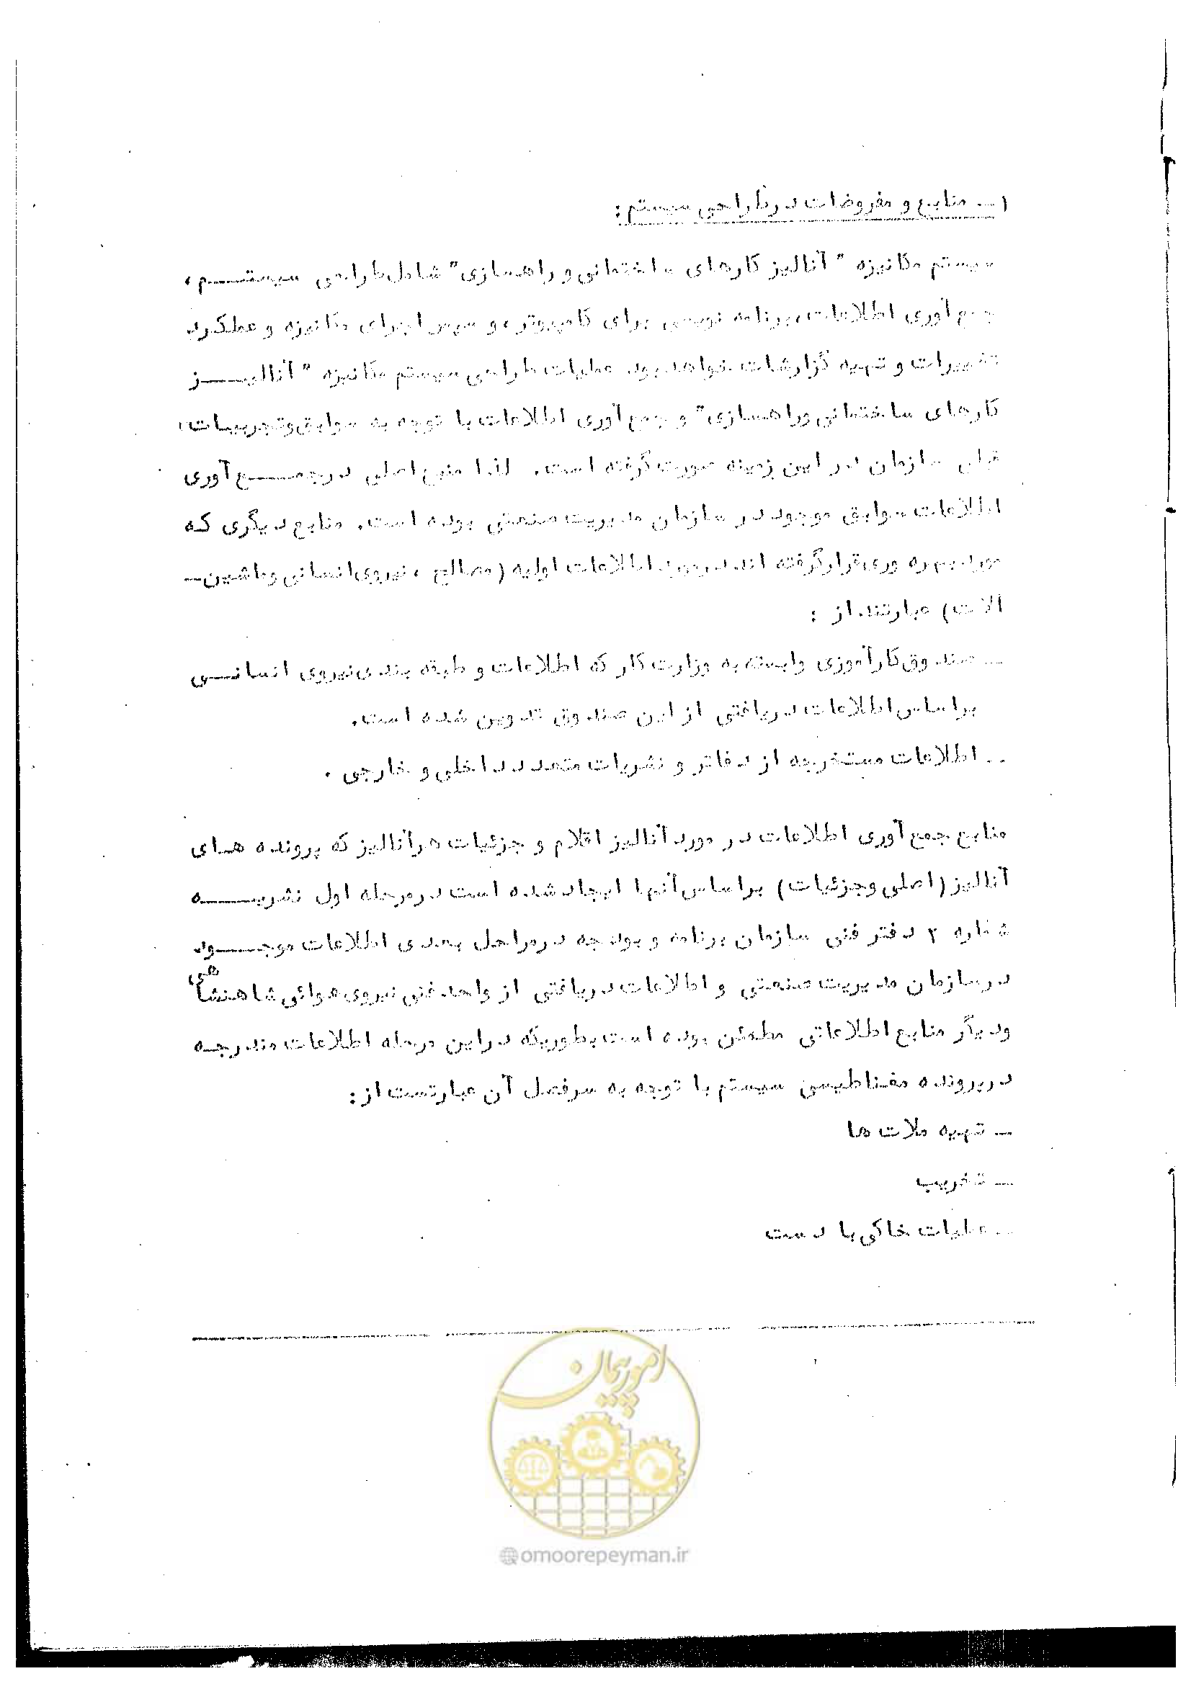 ۱ـ منابع و مفروضات در طراحی سیستم :
سیستم مکانیزه " آنالیز کارهای ساختمانی و راهسازی " شامل طراحی سیستم ،
جمع آوری اطلاعات ، برنامه نویسی برای کامپیوتر ، و سپس اجرای مکانیزه و عملکرد
تغییرات و تهیه گزارشات خواهد بود. عملیات طراحی سیستم مکانیزه " آنالیز
کارهای ساختمانی و راهسازی " و جمع آوری اطلاعات با توجه به سوابق و تجربیات
قبلی سازمان در این زمینه صورت گرفته است. لذا منبع اصلی در جمع آوری
اطلاعات سوابق موجود در سازمان مدیریت صنعتی بوده است. منابع دیگری که
مورد بهره وری قرار گرفته اند در مورد اطلاعات اولیه (مصالح ، نیروی انسانی و ماشین ـ
آلات) عبارتند از :
ـ صندوق کارآموزی وابسته به وزارت کار که اطلاعات و طبقه بندی نیروی انسانی
براساس اطلاعات دریافتی از این صندوق تدوین شده است.
ـ اطلاعات مستخرجه از دفاتر و نشریات متعدد داخلی و خارجی .
منابع جمع آوری اطلاعات در مورد آنالیز اقلام و جزئیات هر آنالیز که پرونده های
آنالیز (اصلی و جزئیات) براساس آنها ایجاد شده است در مرحله اول نشریه
شماره ۲ دفتر فنی سازمان برنامه و بودجه در مراحل بعدی اطلاعات موجود
در سازمان مدیریت صنعتی و اطلاعات دریافتی از واحد فنی نیروی هوائی شاهنشاهی
و دیگر منابع اطلاعاتی مطمئن بوده است بطوریکه در این مرحله اطلاعات مندرجه
در پرونده مغناطیسی سیستم با توجه به سرفصل آن عبارتست از :
ـ تهیه ملات ها
ـ تخریب
ـ عملیات خاکی با دست
امور پیمان
@omoorepeyman.ir